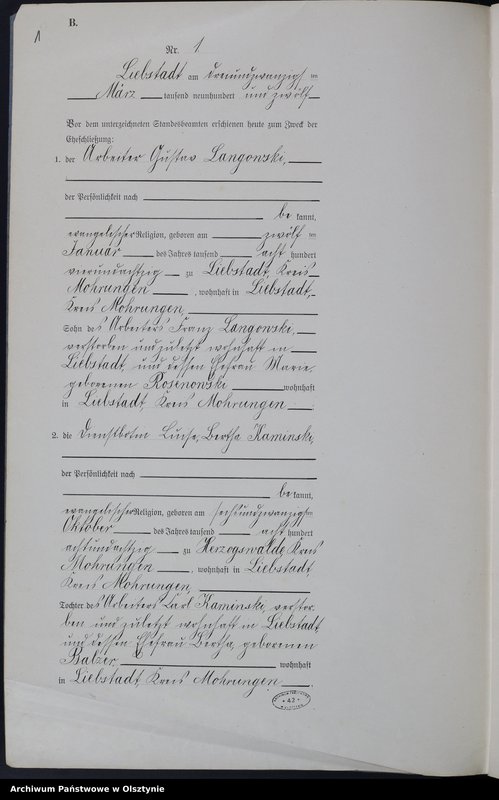 B.
1
Nr. 1
Liebstadt am dreiundzwanzigs ten
März tausend neunhundert und zwölf
Vor dem unterzeichneten Standesbeamten erschienen heute zum Zweck der
Eheschließung:
1. der Arbeiter Gustav Langowski,
der Persönlichkeit nach
be kannt,
evangelischer Religion, geboren am zwölf ten
Januar des Jahres tausend acht hundert
vierundachtzig zu Liebstadt, Kreis
Mohrungen, wohnhaft in Liebstadt,
Kreis Mohrungen,
Sohn des Arbeiters Franz Langowski,
verstorben und zuletzt wohnhaft in
Liebstadt, und dessen Ehefrau Marie,
geborenen Rosenowski wohnhaft
in Liebstadt, Kreis Mohrungen.
2. die Dienstbotin Luise, Bertha Kaminski,
der Persönlichkeit nach
be kannt,
evangelischer Religion, geboren am sechsundzwanzigsten
Oktober des Jahres tausend acht hundert
achtundachtzig zu Herzogswalde, Kreis
Mohrungen, wohnhaft in Liebstadt,
Kreis Mohrungen,
Tochter des Arbeiters Carl Kaminski, verstor-
ben und zuletzt wohnhaft in Liebstadt,
und dessen Ehefrau Bertha, geborenen
Balzer, wohnhaft
in Liebstadt, Kreis Mohrungen.
42
Archiwum Państwowe w Olsztynie